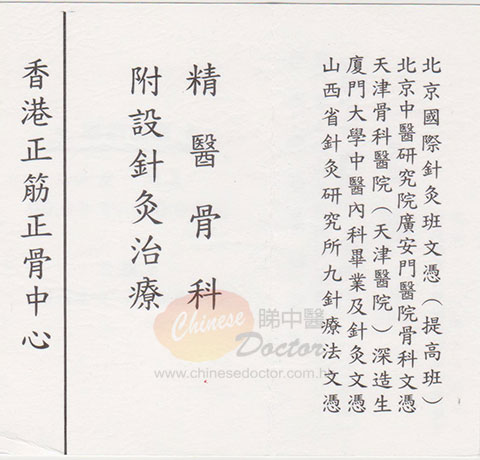 北京國際針灸班文憑（提高班）
北京中醫研究院廣安門醫院骨科文憑
天津骨科醫院（天津醫院）深造生
廈門大學中醫內科畢業及針灸文憑
山西省針灸研究所九針療法文憑
精醫骨科
附設針灸治療
香港正筋正骨中心
Chinese 睇中醫
Doctor
www.chinesedoctor.com.hk